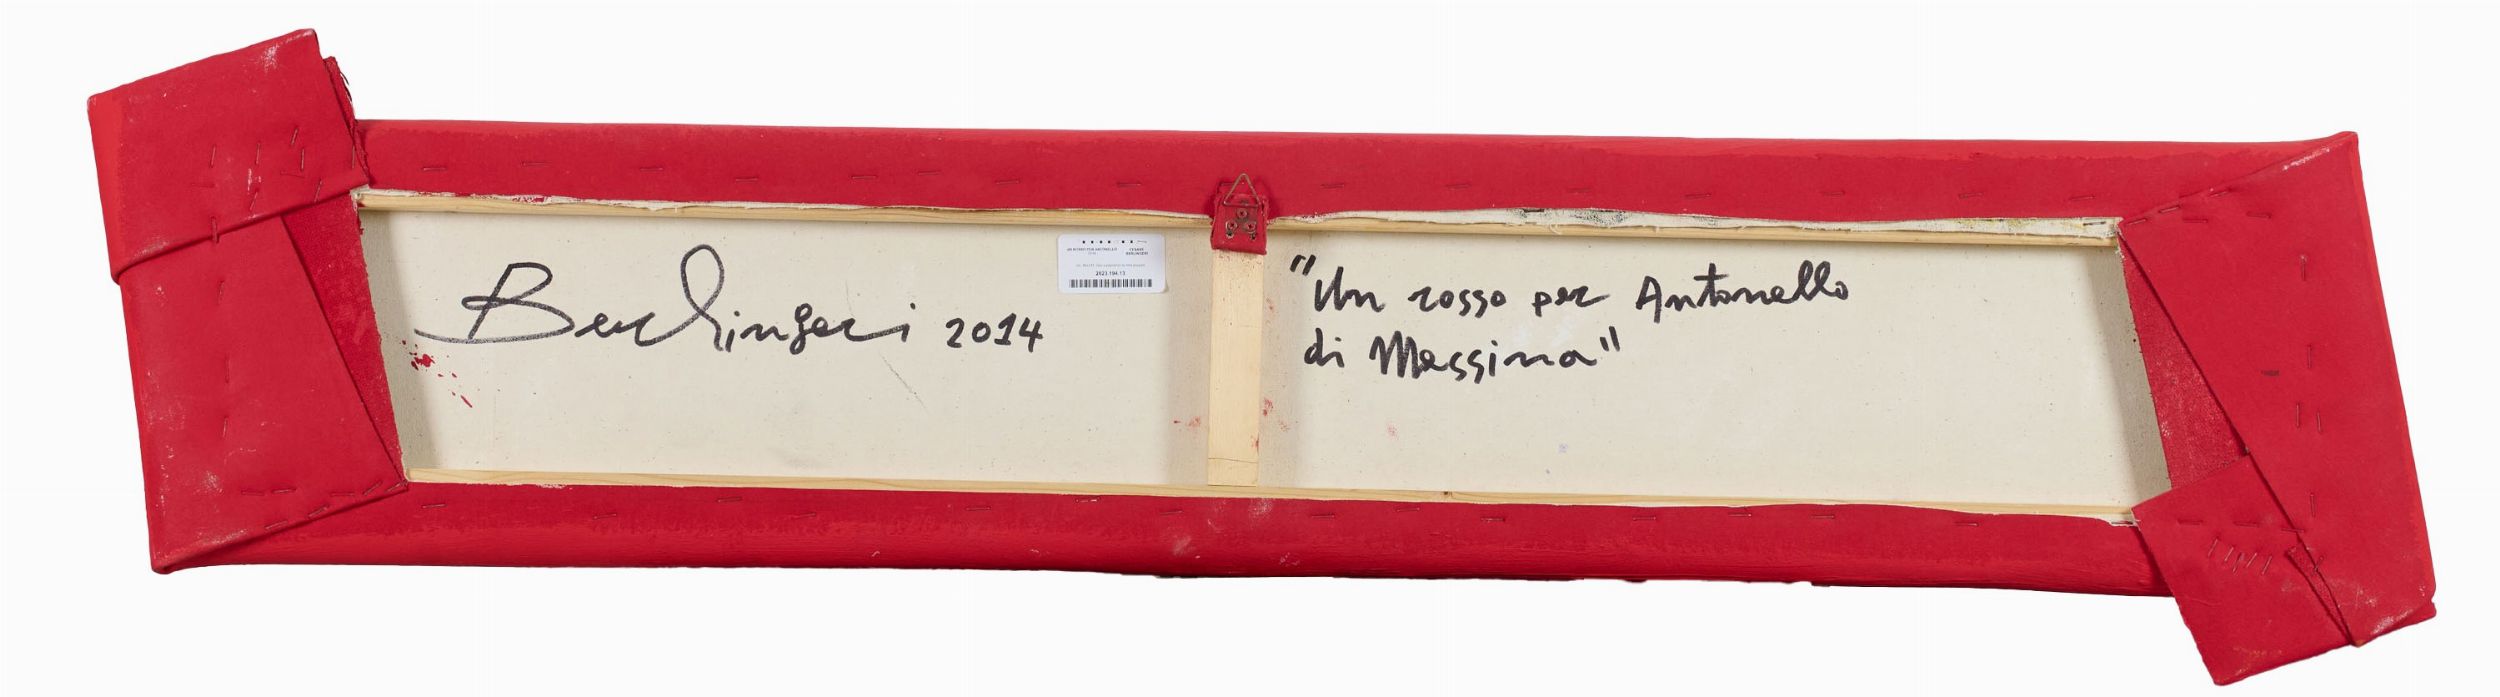 Berlingeri 2014
"Un rosso per Antonello
di Messina"
UN ROSSO PER ANTONELLO
CESARE
BERLINGERI
2023.194.13